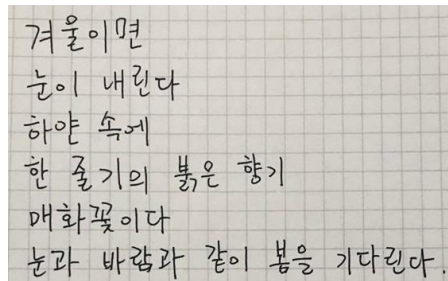 겨울이면
눈이 내린다
하얀 속에
한 줄기의 붉은 향기
매화꽃이다
눈과 바람과 같이 봄을 기다린다.